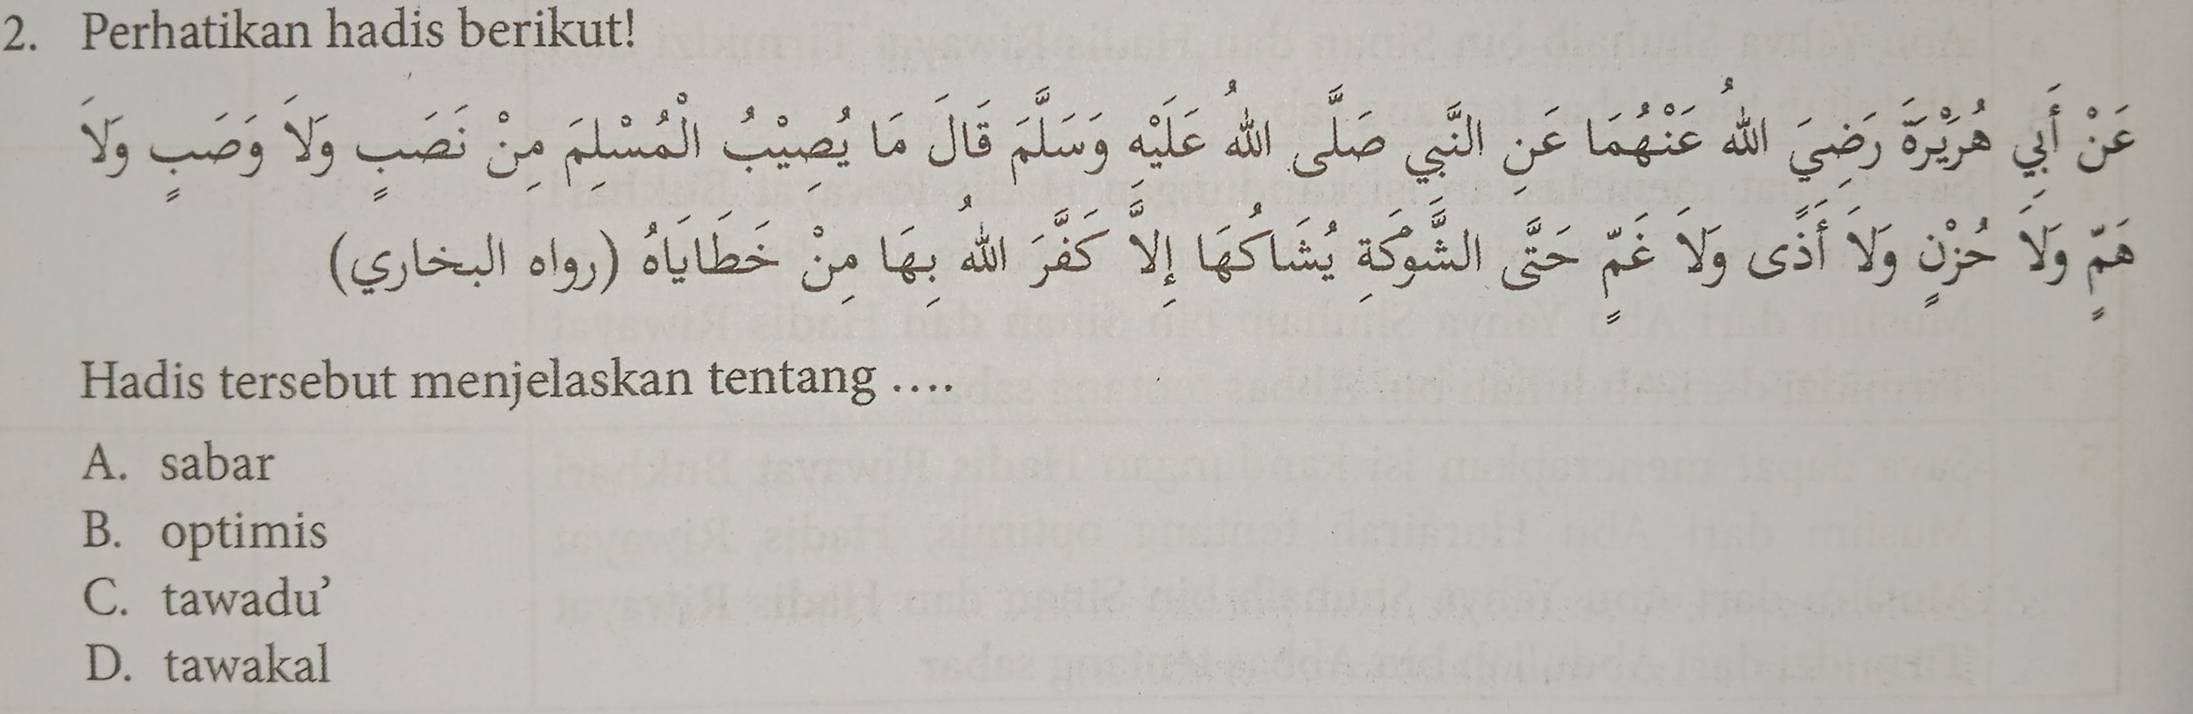 2. Perhatikan hadis berikut!
عَنْ أَبِي هُرَيْرَةَ رَضِيَ اللهُ عَنْهُمَا عَنِ النَّبِيِّ صَلَّى اللهُ عَلَيْهِ وَسَلَّمَ قَالَ مَا يُصِيْبُ الْمُسْلِمَ مِنْ نَصَبٍ وَلاَ وَصَبٍ وَلاَ
هَمٍّ وَلاَ حُزْنٍ وَلاَ أَذًى وَلاَ غَمٍّ حَتَّى الشَّوْكَةِ يُشَاكُهَا إِلاَّ كَفَّرَ اللهُ بِهَا مِنْ خَطَايَاهُ (رواه البخاري)
Hadis tersebut menjelaskan tentang ....
A. sabar
B. optimis
C. tawadu’
D. tawakal